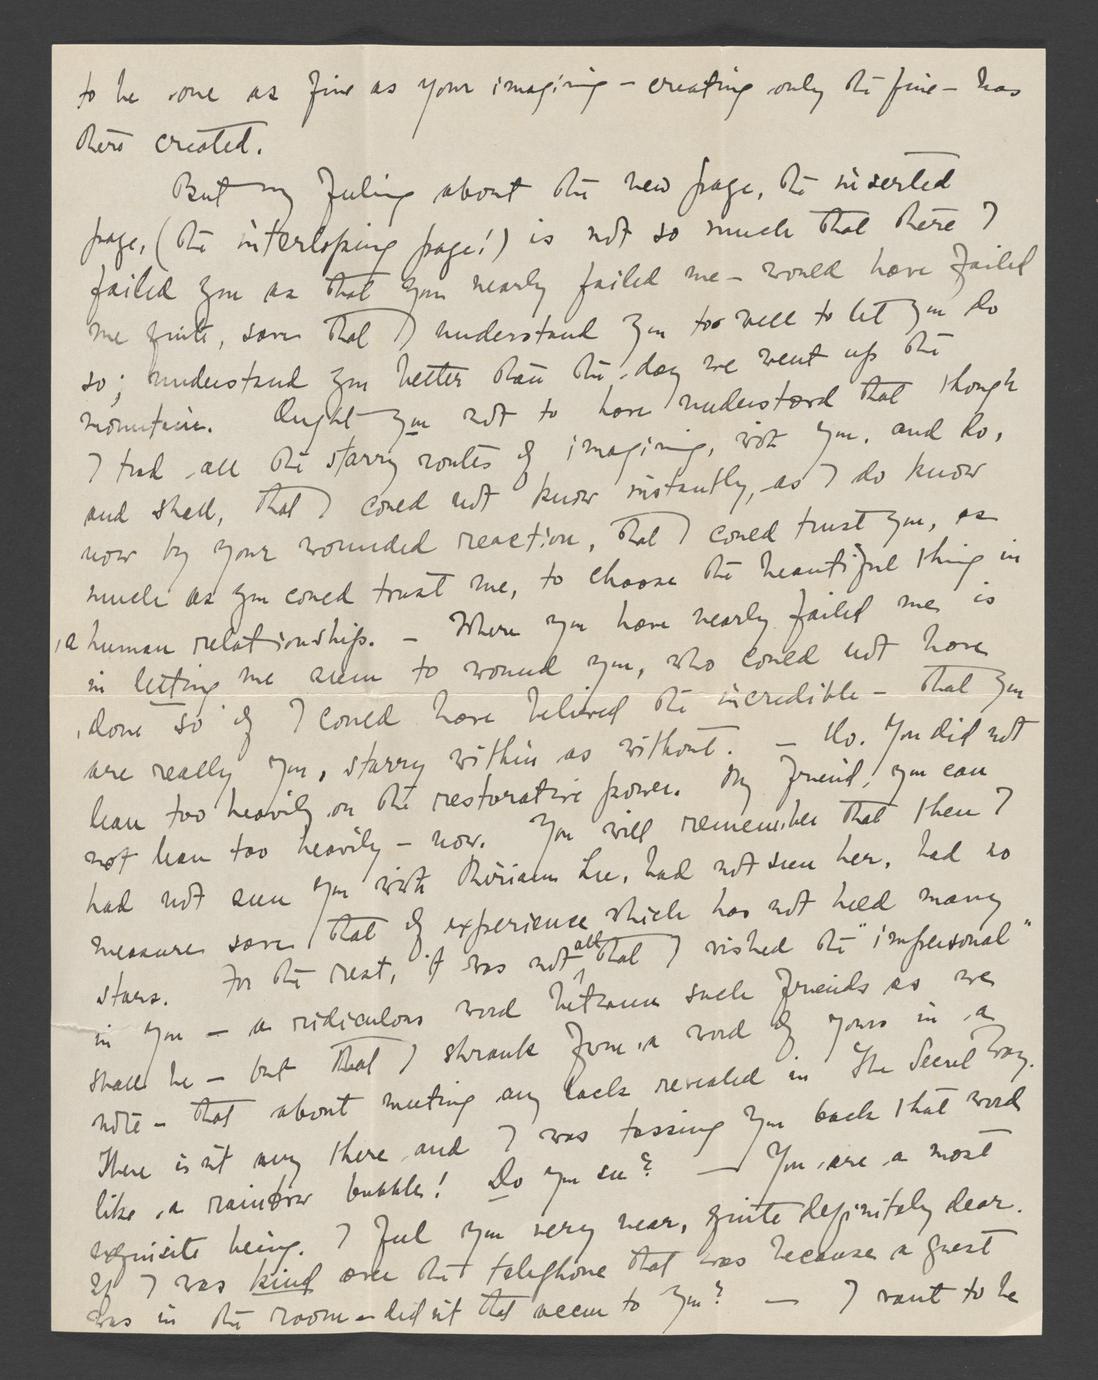 to be one as fine as your imagining – creating only the fine – has
there created.
But my feeling about the new page, the inserted
page, (the interloping page!) is not so much that there I
failed you as that you nearly failed me – would have failed
me quite, save that I understand you too well to let you do
so; understand you better than the day we went up the
mountain. Ought you not to have understood that though
I trod all the starry routes of imagining, with you, and do,
and shall, that I could not know instantly, as I do know
now by your wounded reaction, that I could trust you, as
much as you could trust me, to choose the beautiful thing in
a human relationship. – Where you have nearly failed me is
in letting me seem to wound you, who could not have
done so if I could have believed the incredible – that you
are really you, starry within as without. – No. You did not
lean too heavily on the restorative power. My friend, you can
not lean too heavily – now. You will remember that then I
had not seen you with Miriam Lee, had not seen her, had no
measure save that of experience which has not held many
stars. For the rest, it was not all that I wished the "impersonal"
in you – a ridiculous word between such friends as we
shall be – but that I shrank from a word of yours in a
note – that about meeting any lack revealed in The Secret Way.
There isn't any there and I was tossing you back that word
like a rainbow bubble! Do you see? — You are a most
exquisite being. I feel you very near, quite definitely dear.
If I was kind over the telephone that was because a guest
was in the room – didn't that occur to you? — I want to be